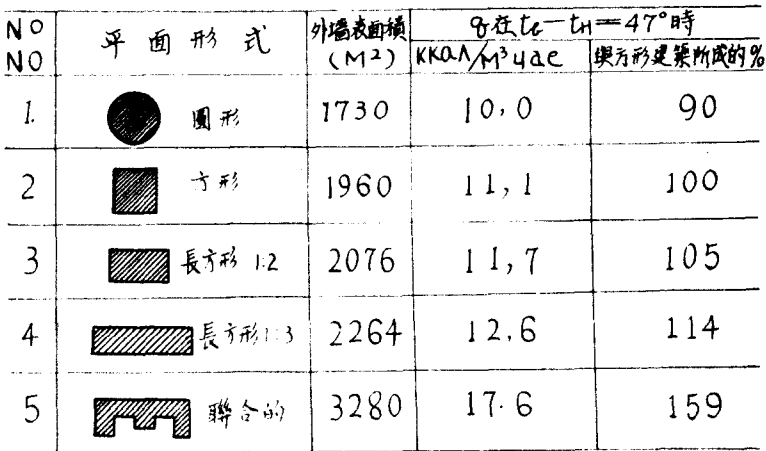 NO NO 平面形式 外墻表面積 (M2) q在tв-tн=47°時
ккал/м³час 與方形建築所成的%
1. 圓形 1730 10,0 90
2 方形 1960 11,1 100
3 長方形 1:2 2076 11,7 105
4 長方形1:3 2264 12.6 114
5 聯合的 3280 17.6 159